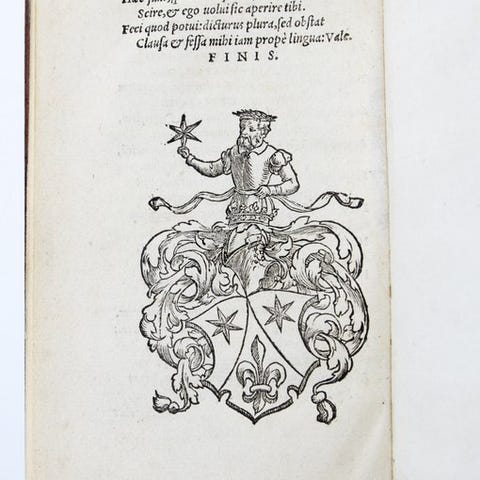 Scire, & ego volui sic aperire tibi.
Feci quod potui: dicturus plura, sed obstat
Clausa & fessa mihi iam propè lingua: Vale.
FINIS.